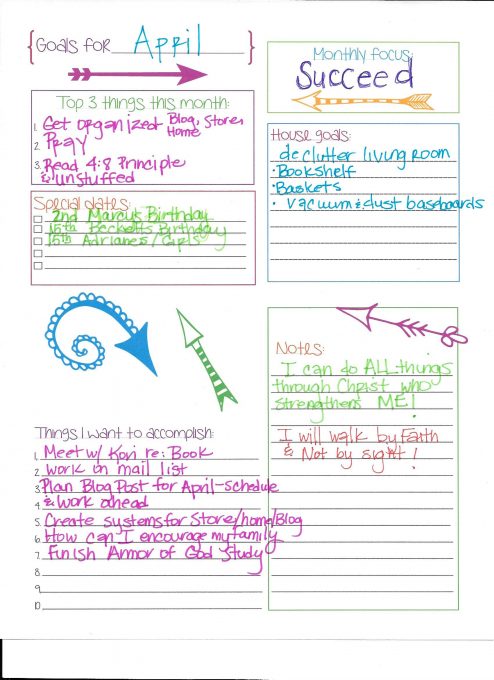 Goals for April
Top 3 things this month:
1. Get organized Blog, Store,
Home
2. Pray
3. Read 4:8 Principle
& Unstuffed
Special dates:
2nd Marcus' Birthday
15th Beckett's Birthday
15th Adriane's / Girls
Monthly focus:
Succeed
House goals:
declutter living room
• Bookshelf
• Baskets
• vacuum & dust baseboards
Things I want to accomplish:
1. Meet w/ Kori re: Book
2. work on mail list
3. Plan Blog Post for April-schedule
4. & work ahead
5. Create systems for Store/home/Blog
6. How can I encourage my family
7. Finish Armor of God Study
8.
9.
10.
Notes:
I can do ALL things
through Christ who
strengthens ME!
I will walk by Faith
& Not by sight!